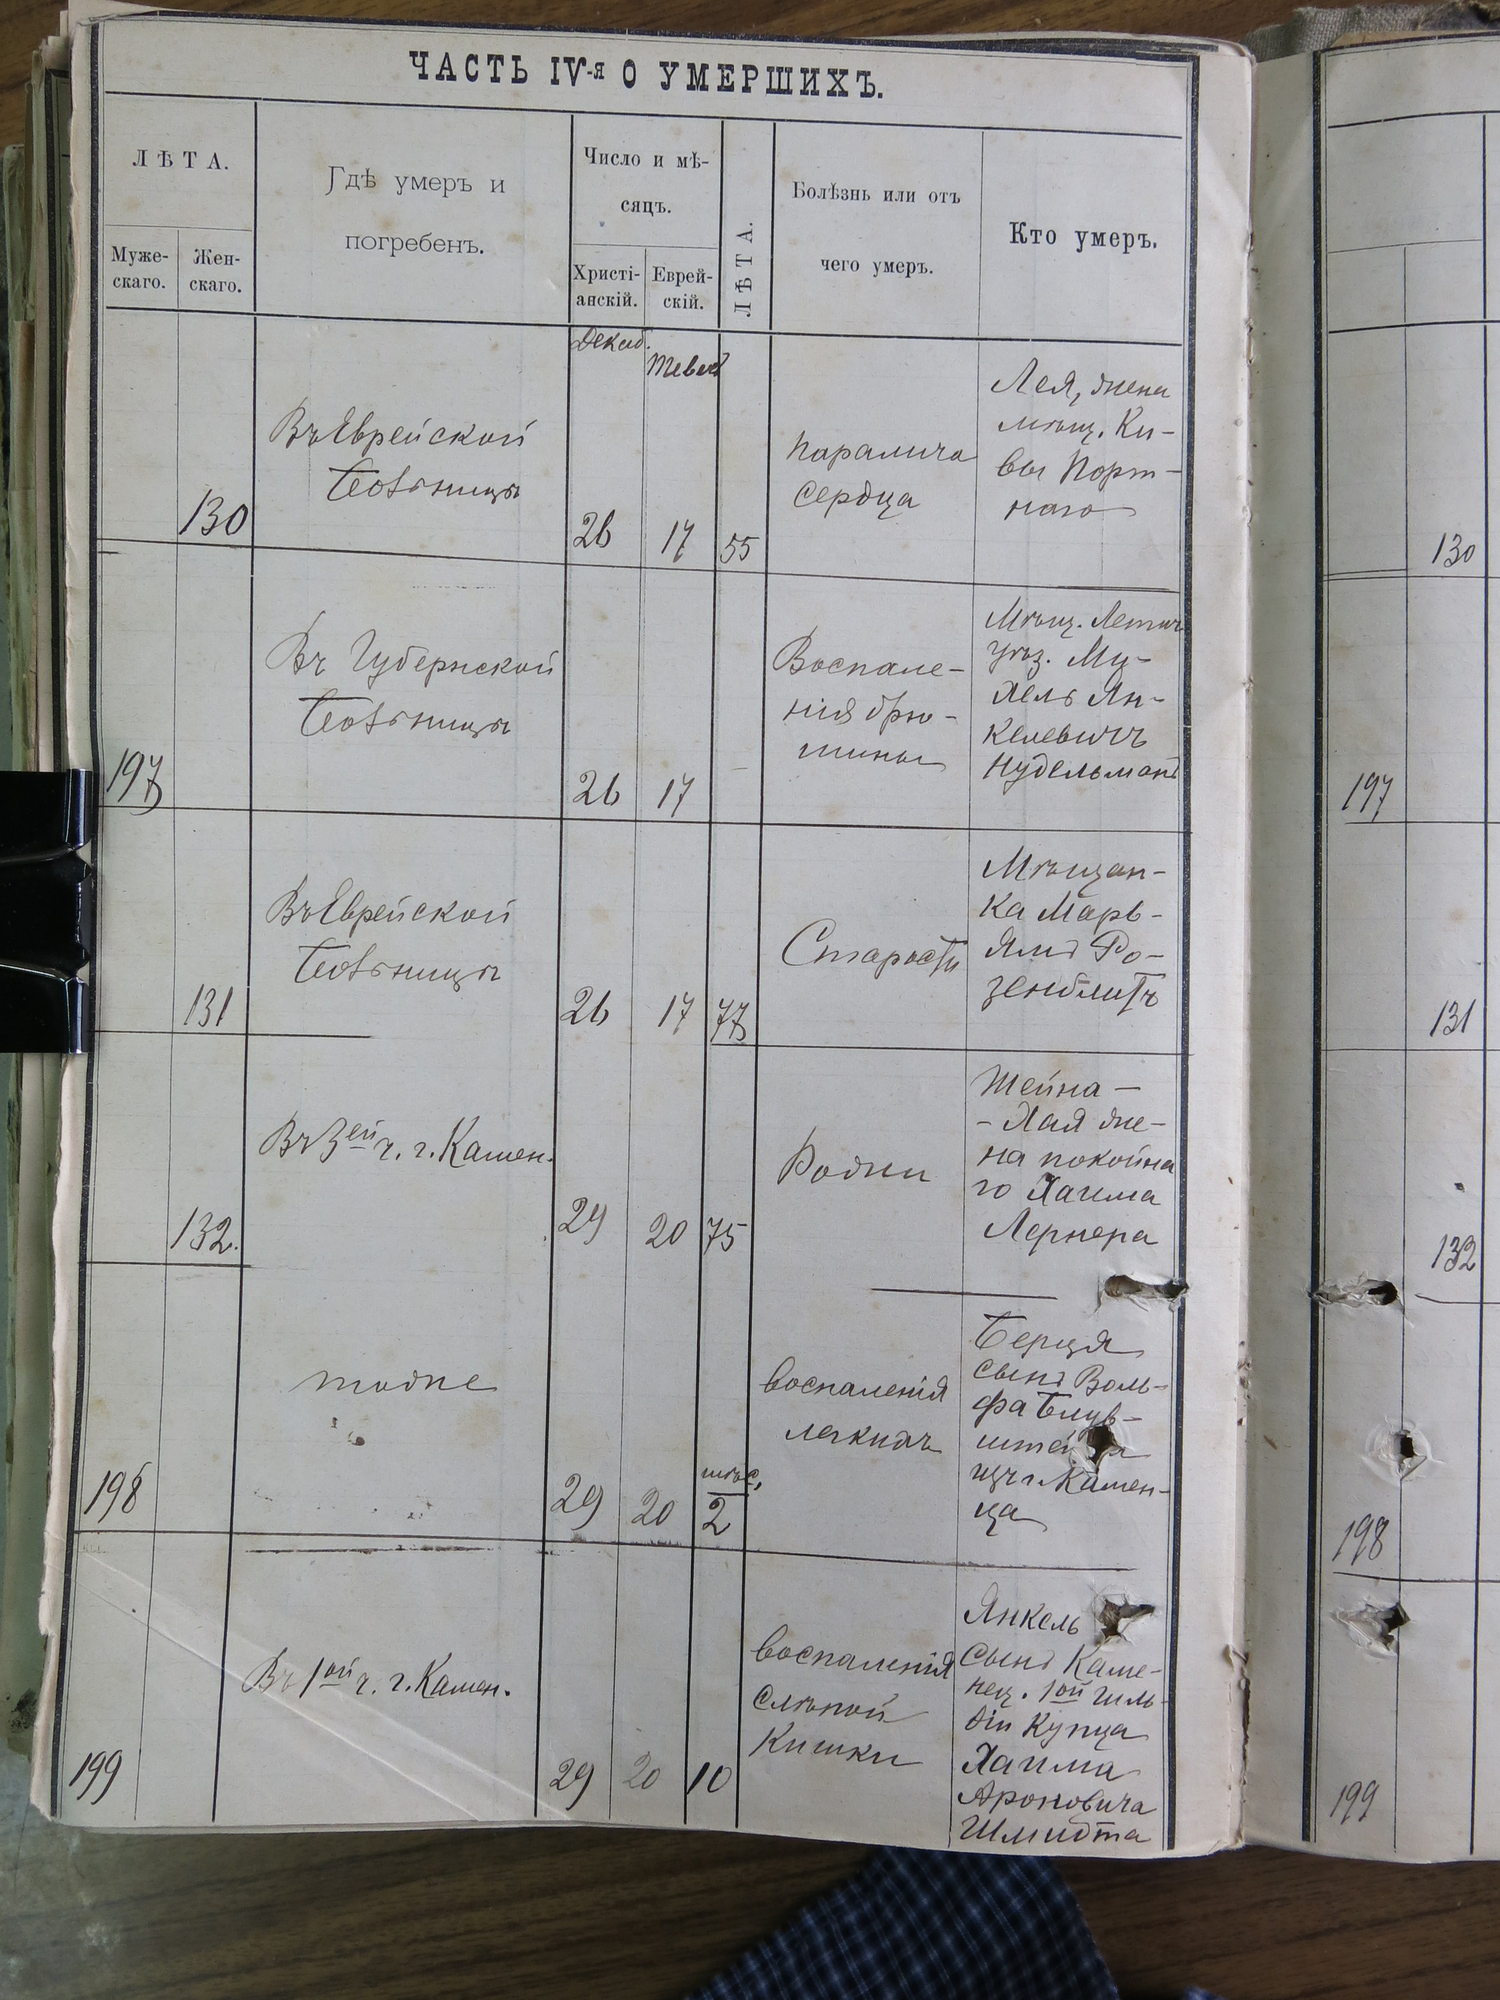 ЧАСТЬ IV-я О УМЕРШИХЪ.
ЛѢТА.
Муже-
скаго.
Жен-
скаго.
Гдѣ умеръ и
погребенъ.
Число и мѣ-
сяцъ.
Христі-
анскій.
Еврей-
скій.
ЛѢТА.
Болѣзнь или отъ
чего умеръ.
Кто умеръ.
Декаб.
Тевеѳ
130
Въ Еврейской
Больницѣ
26
17
55
паралича
сердца
Лея, жена
мѣщ. Ки-
вы Порт-
наго
130
197
Въ Губернской
Больницѣ
26
17
Воспале-
нія брю-
шины
Мѣщ. Летич
уѣз. Му-
Хель Ян-
келевичъ
Нудельманъ
197
131
Въ Еврейской
Больницѣ
26
17
77
Старости
Мѣщан-
ка Марь-
ямъ Ро-
зенблитъ
131
132.
Въ 3ей ч. г. Камен.
29
20
75
Шейна-
- Хая же-
на покойна
го Хаима
Лернера
132
198
тоже
29
20
мѣс.
2
воспаленія
легкихъ
Берця
сынъ Воль-
фа
изъ г. Камен-
ца
198
199
Въ 1ой ч. г. Камен.
29
20
10
воспаленія
слѣпой
Кишки
Янкель
сынъ Каме-
нец. 1ой гиль-
діи Купца
Хаима
Ароновича
Шмидта
199